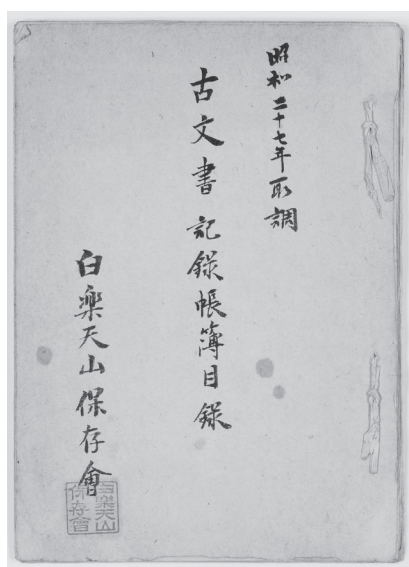 昭和二十七年取調
古文書記錄帳簿目錄
白樂天山保存會
白樂天山
保存會